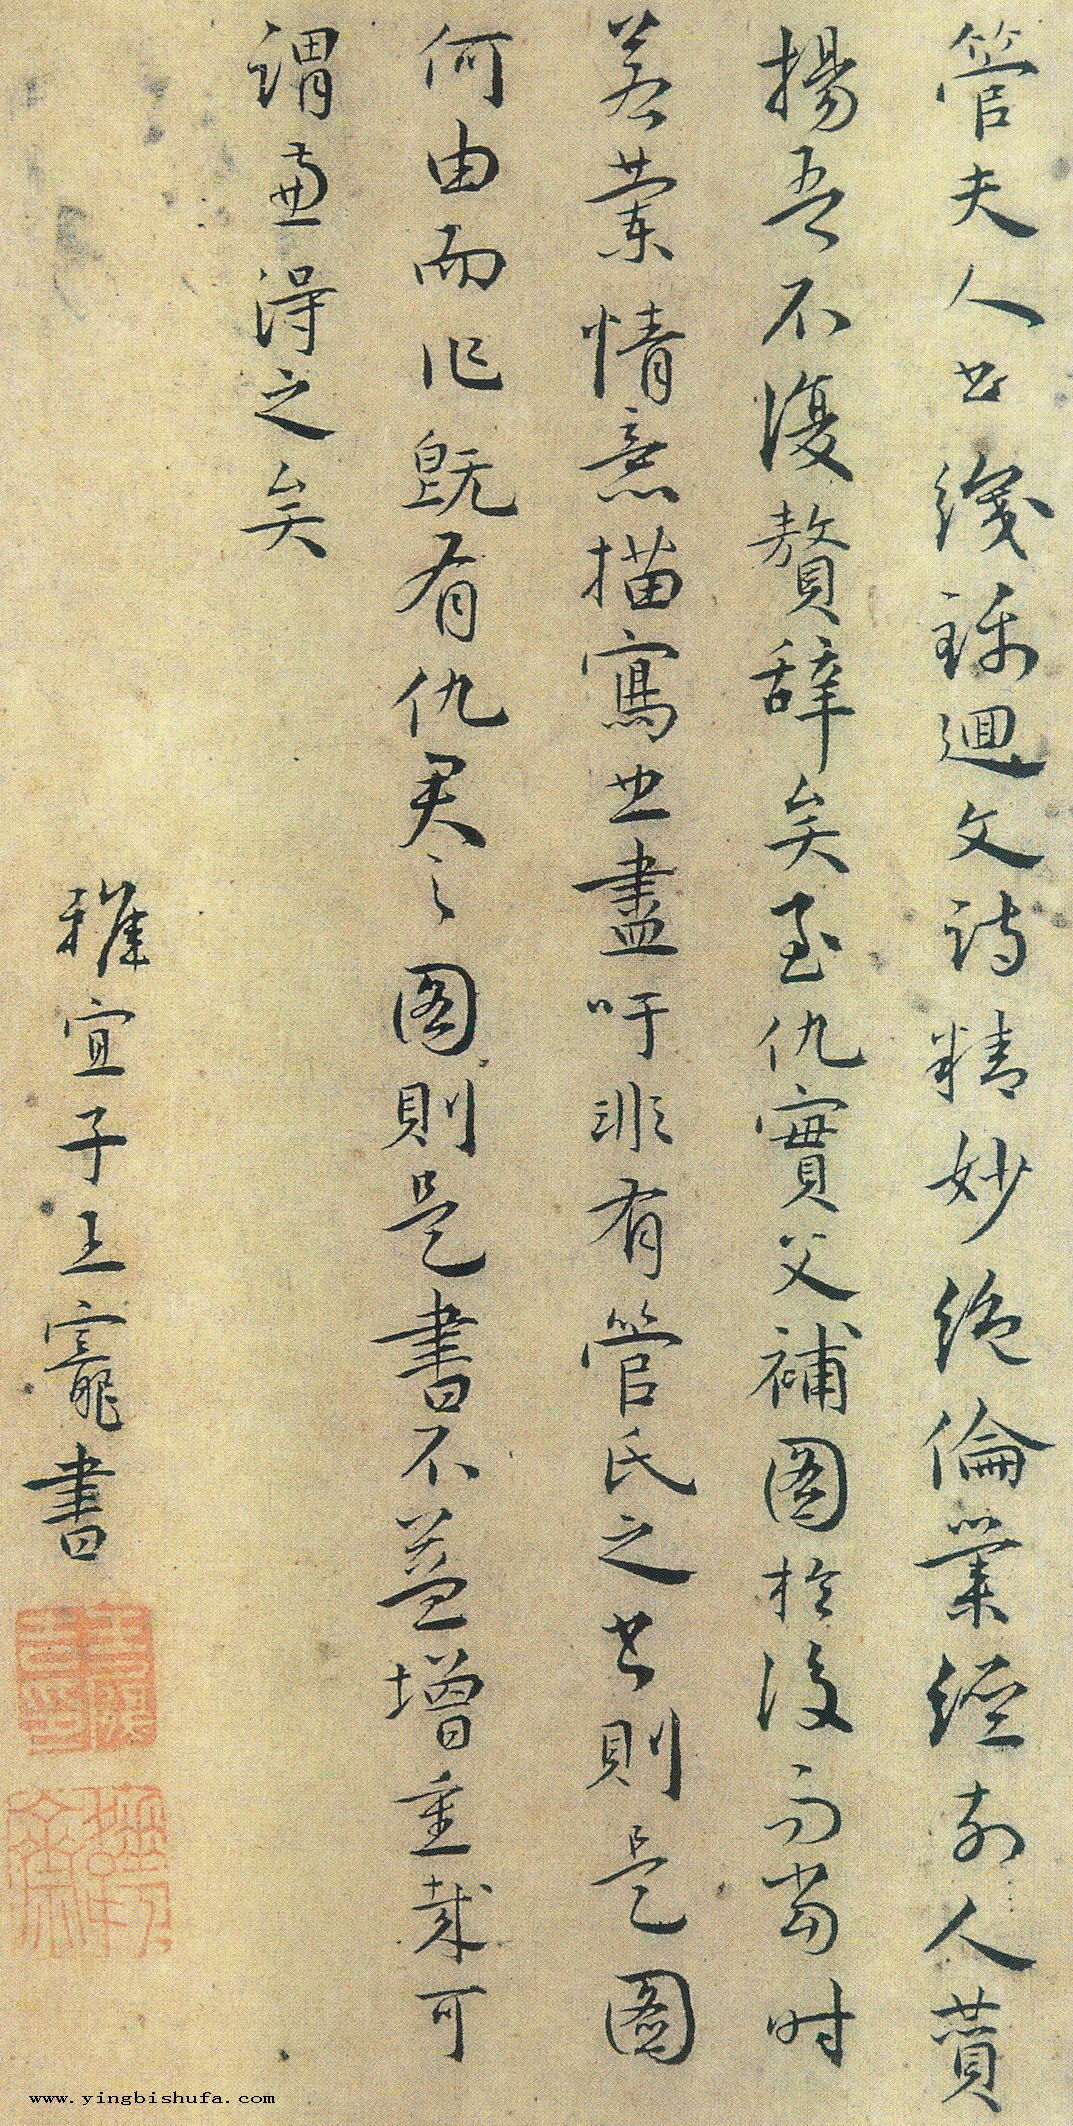 管夫人書織錦迴文詩精妙絶倫業經前人賛
揚吾不復贅辭矣至仇實父補圖於後而當時
若蘭情意描寫曲盡吁非有管氏之書則是圖
何由而作既有仇君之圖則是書不益增重哉可
謂兼得之矣
雅宜子王寵書
www.yingbishufa.com